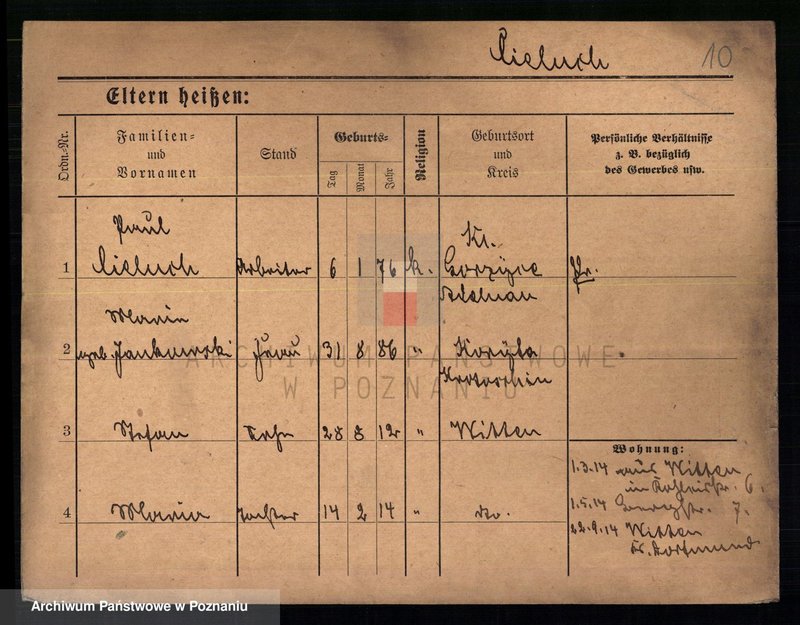 Cieluch 10
Eltern heißen:
Ordn.-Nr.
Familien- und Vornamen
Stand
Geburts-
Tag
Monat
Jahr
Religion
Geburtsort und Kreis
Persönliche Verhältnisse
z. B. bezüglich
des Gewerbes usw.
Paul
1 Cieluch Arbeiter 6 1 76 k. Kl. Gorzyce Adelnau Pr.
Maria
2 geb. Jankowski Frau 31 8 86 " Koryta Krotoschin
3 Stefan Sohn 28 8 12 " Witten
4 Maria Tochter 14 2 14 " do.
Wohnung:
1.3.14 aus Witten
in 6.
1.5.14 7.
22.9.14 Witten
Kr. Dortmund
ARCHIWUM PAŃSTWOWE
W POZNANIU
Archiwum Państwowe w Poznaniu